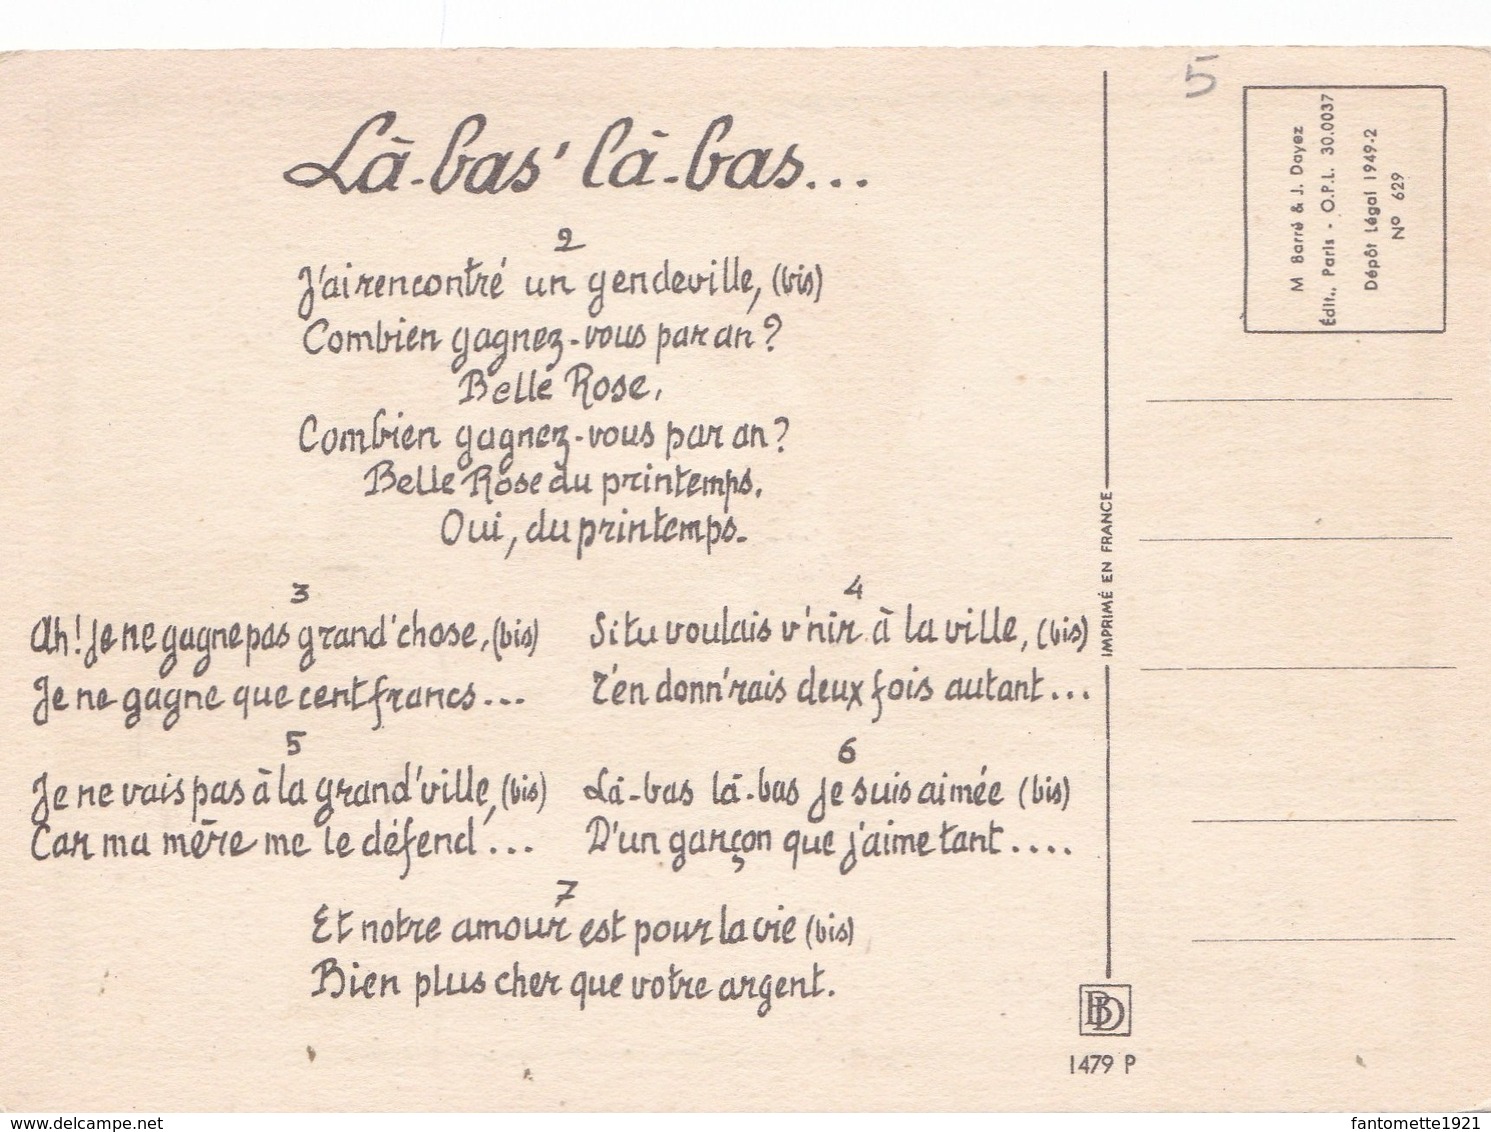 Là-bas' là-bas...
2
J'ai rencontré un gendeville, (bis)
Combien gagnez-vous par an ?
Belle Rose,
Combien gagnez-vous par an ?
Belle Rose du printemps,
Oui, du printemps.
3
Ah! je ne gagne pas grand'chose, (bis)
Je ne gagne que cent francs...
4
Si tu voulais v'nir à la ville, (bis)
T'en donn'rais deux fois autant...
5
Je ne vais pas à la grand'ville, (bis)
Car ma mère me le défend...
6
Là-bas là-bas je suis aimée (bis)
D'un garçon que j'aime tant....
7
Et notre amour est pour la vie (bis)
Bien plus cher que votre argent.
IMPRIMÉ EN FRANCE
BD
1479 P
5
M Barré & J. Dayez
Édit., Paris - O.P.L. 30.0037
Dépôt Légal 1949-2
Nº 629
www.delcampe.net
fantomette1921